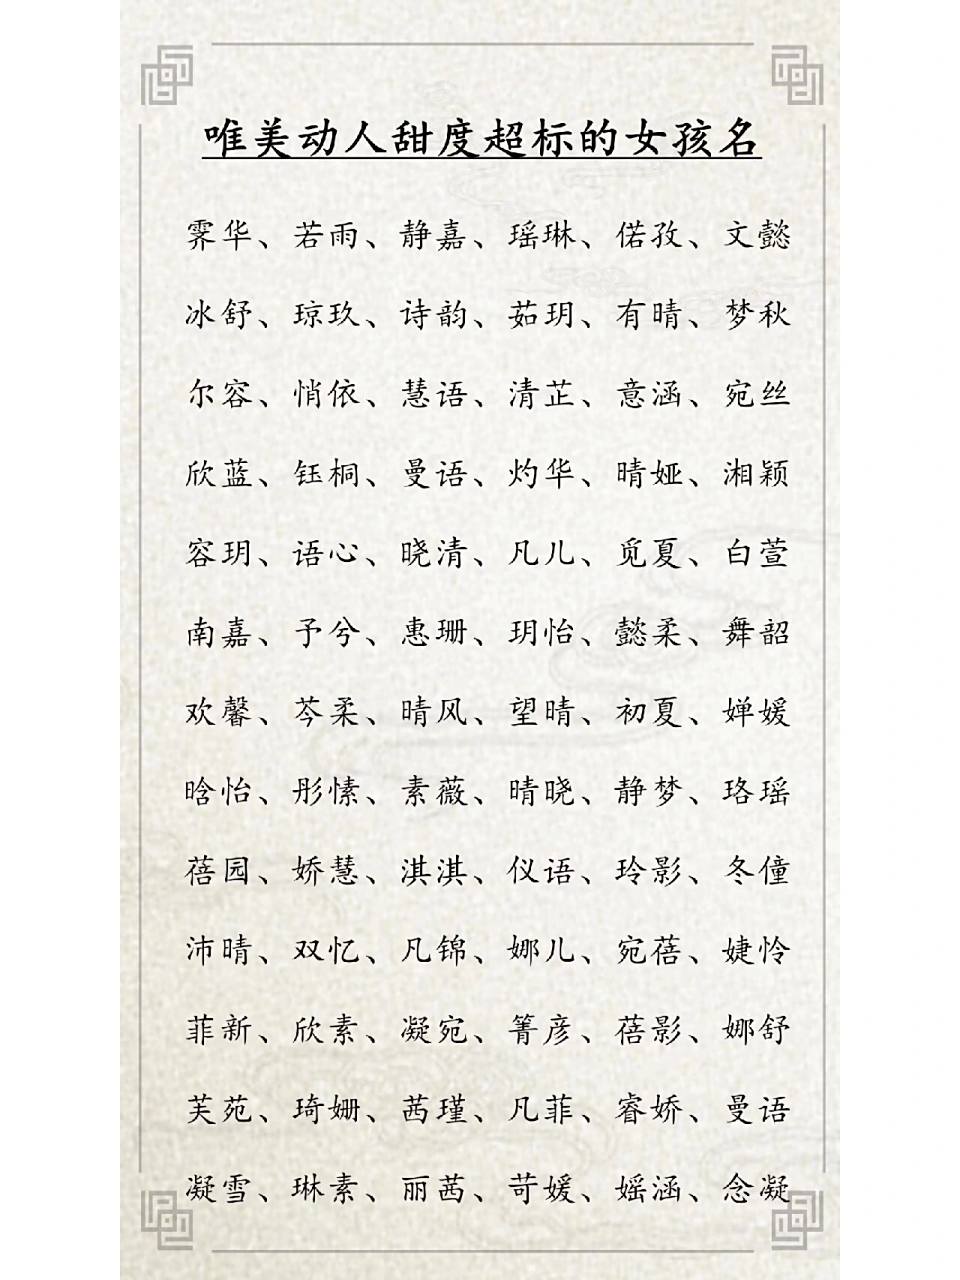 唯美动人甜度超标的女孩名
霁华、若雨、静嘉、瑶琳、偌孜、文懿
冰舒、琼玖、诗韵、茹玥、有晴、梦秋
尔容、悄依、慧语、清芷、意涵、宛丝
欣蓝、钰桐、曼语、灼华、晴娅、湘颖
容玥、语心、晓清、凡儿、觅夏、白萱
南嘉、予兮、惠珊、玥怡、懿柔、舞韶
欢馨、芩柔、晴风、望晴、初夏、婵媛
晗怡、彤愫、素薇、晴晓、静梦、珞瑶
蓓园、娇慧、淇淇、仪语、玲影、冬僮
沛晴、双忆、凡锦、娜儿、宛蓓、婕怜
菲新、欣素、凝宛、箐彦、蓓影、娜舒
芙苑、琦姗、茜瑾、凡菲、睿娇、曼语
凝雪、琳素、丽茜、苛媛、媱涵、念凝